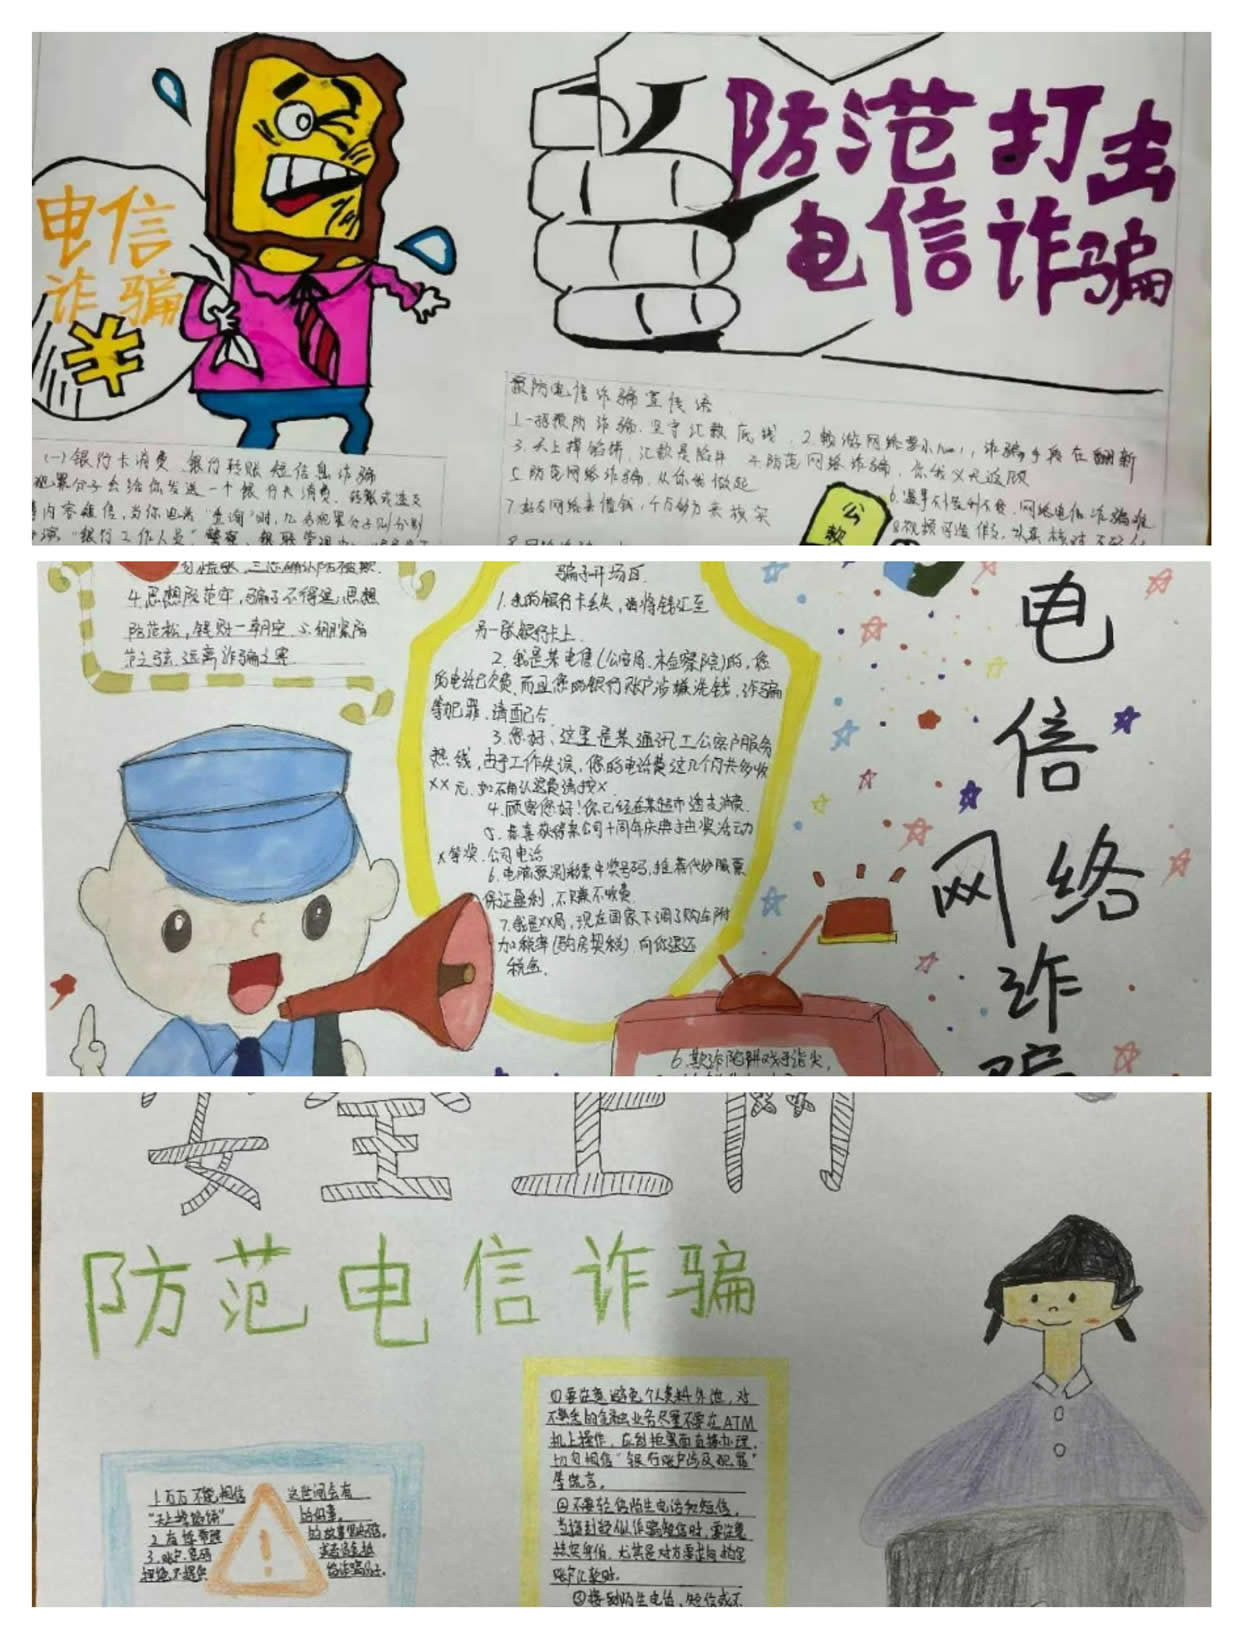 电信
诈骗
防范打击
电信诈骗
预防电信诈骗宣传语
1.一招预防诈骗,坚守汇款底线,2.畅游网络要小心,诈骗手段在翻新
3.天上掉馅饼,汇款是陷井 4.防范网络诈骗,你我义不返顾
5.防范网络诈骗,从你我做起
7.好友网络来借钱,千方努力来核实
(一)银行卡消费、银行转账短信息诈骗
犯罪分子会给你发送一个银行卡消费、转账或透支
内容短信,当你电话"查询"时,几名犯罪分子则分别
"银行工作人员"警察、银联管理中心
4.思想防范牢,骗子不得逞;思想
防范松,钱财一朝空.5.绷紧防
范之弦,远离诈骗之害.
骗子开场白.
1.我的银行卡丢失,请将钱汇至
另一张银行卡上.
2.我是某电信(公安局、木检察院)的,您
的电话已欠费,而且您的银行账户涉嫌洗钱,诈骗
等犯罪,请配合.
3.您好,这里是某通讯工公案户服务
热线,由于工作失误,您的电话费这几个月共多收
XX元,如不确认退费请按X.
4.顾客您好!你已经在某超市透支消费.
5.恭喜获得某公司十周年庆典抽奖活动
X等奖.公司电话
6.电脑预测彩票中奖号码,推荐代炒股票
保证盈利,不赚不收费.
7.我是XX局,现在国家下调了购车附
加税率(购房契税)向你退还
税金.
6.欺诈陷阱戏于指尖,
电
信
网络
诈
骗
安全上网
防范电信诈骗
①要注意避免个人资料外泄,对
不熟悉的金融业务尽量不要在ATM
机上操作,应到柜里面直接办理,
切勿相信"银行账户涉及犯罪"
等谎言.
②不要轻信陌生电话和短信,
当接到疑似诈骗短信时,要注意
核实身份,尤其是对方要求向指定
账户汇款时.
③接到陌生电话,短信或不
1.万万不能相信这世间会有
"天上掉馅饼"的好事.
3.账户.密码
拒绝不提供给诈骗分子.